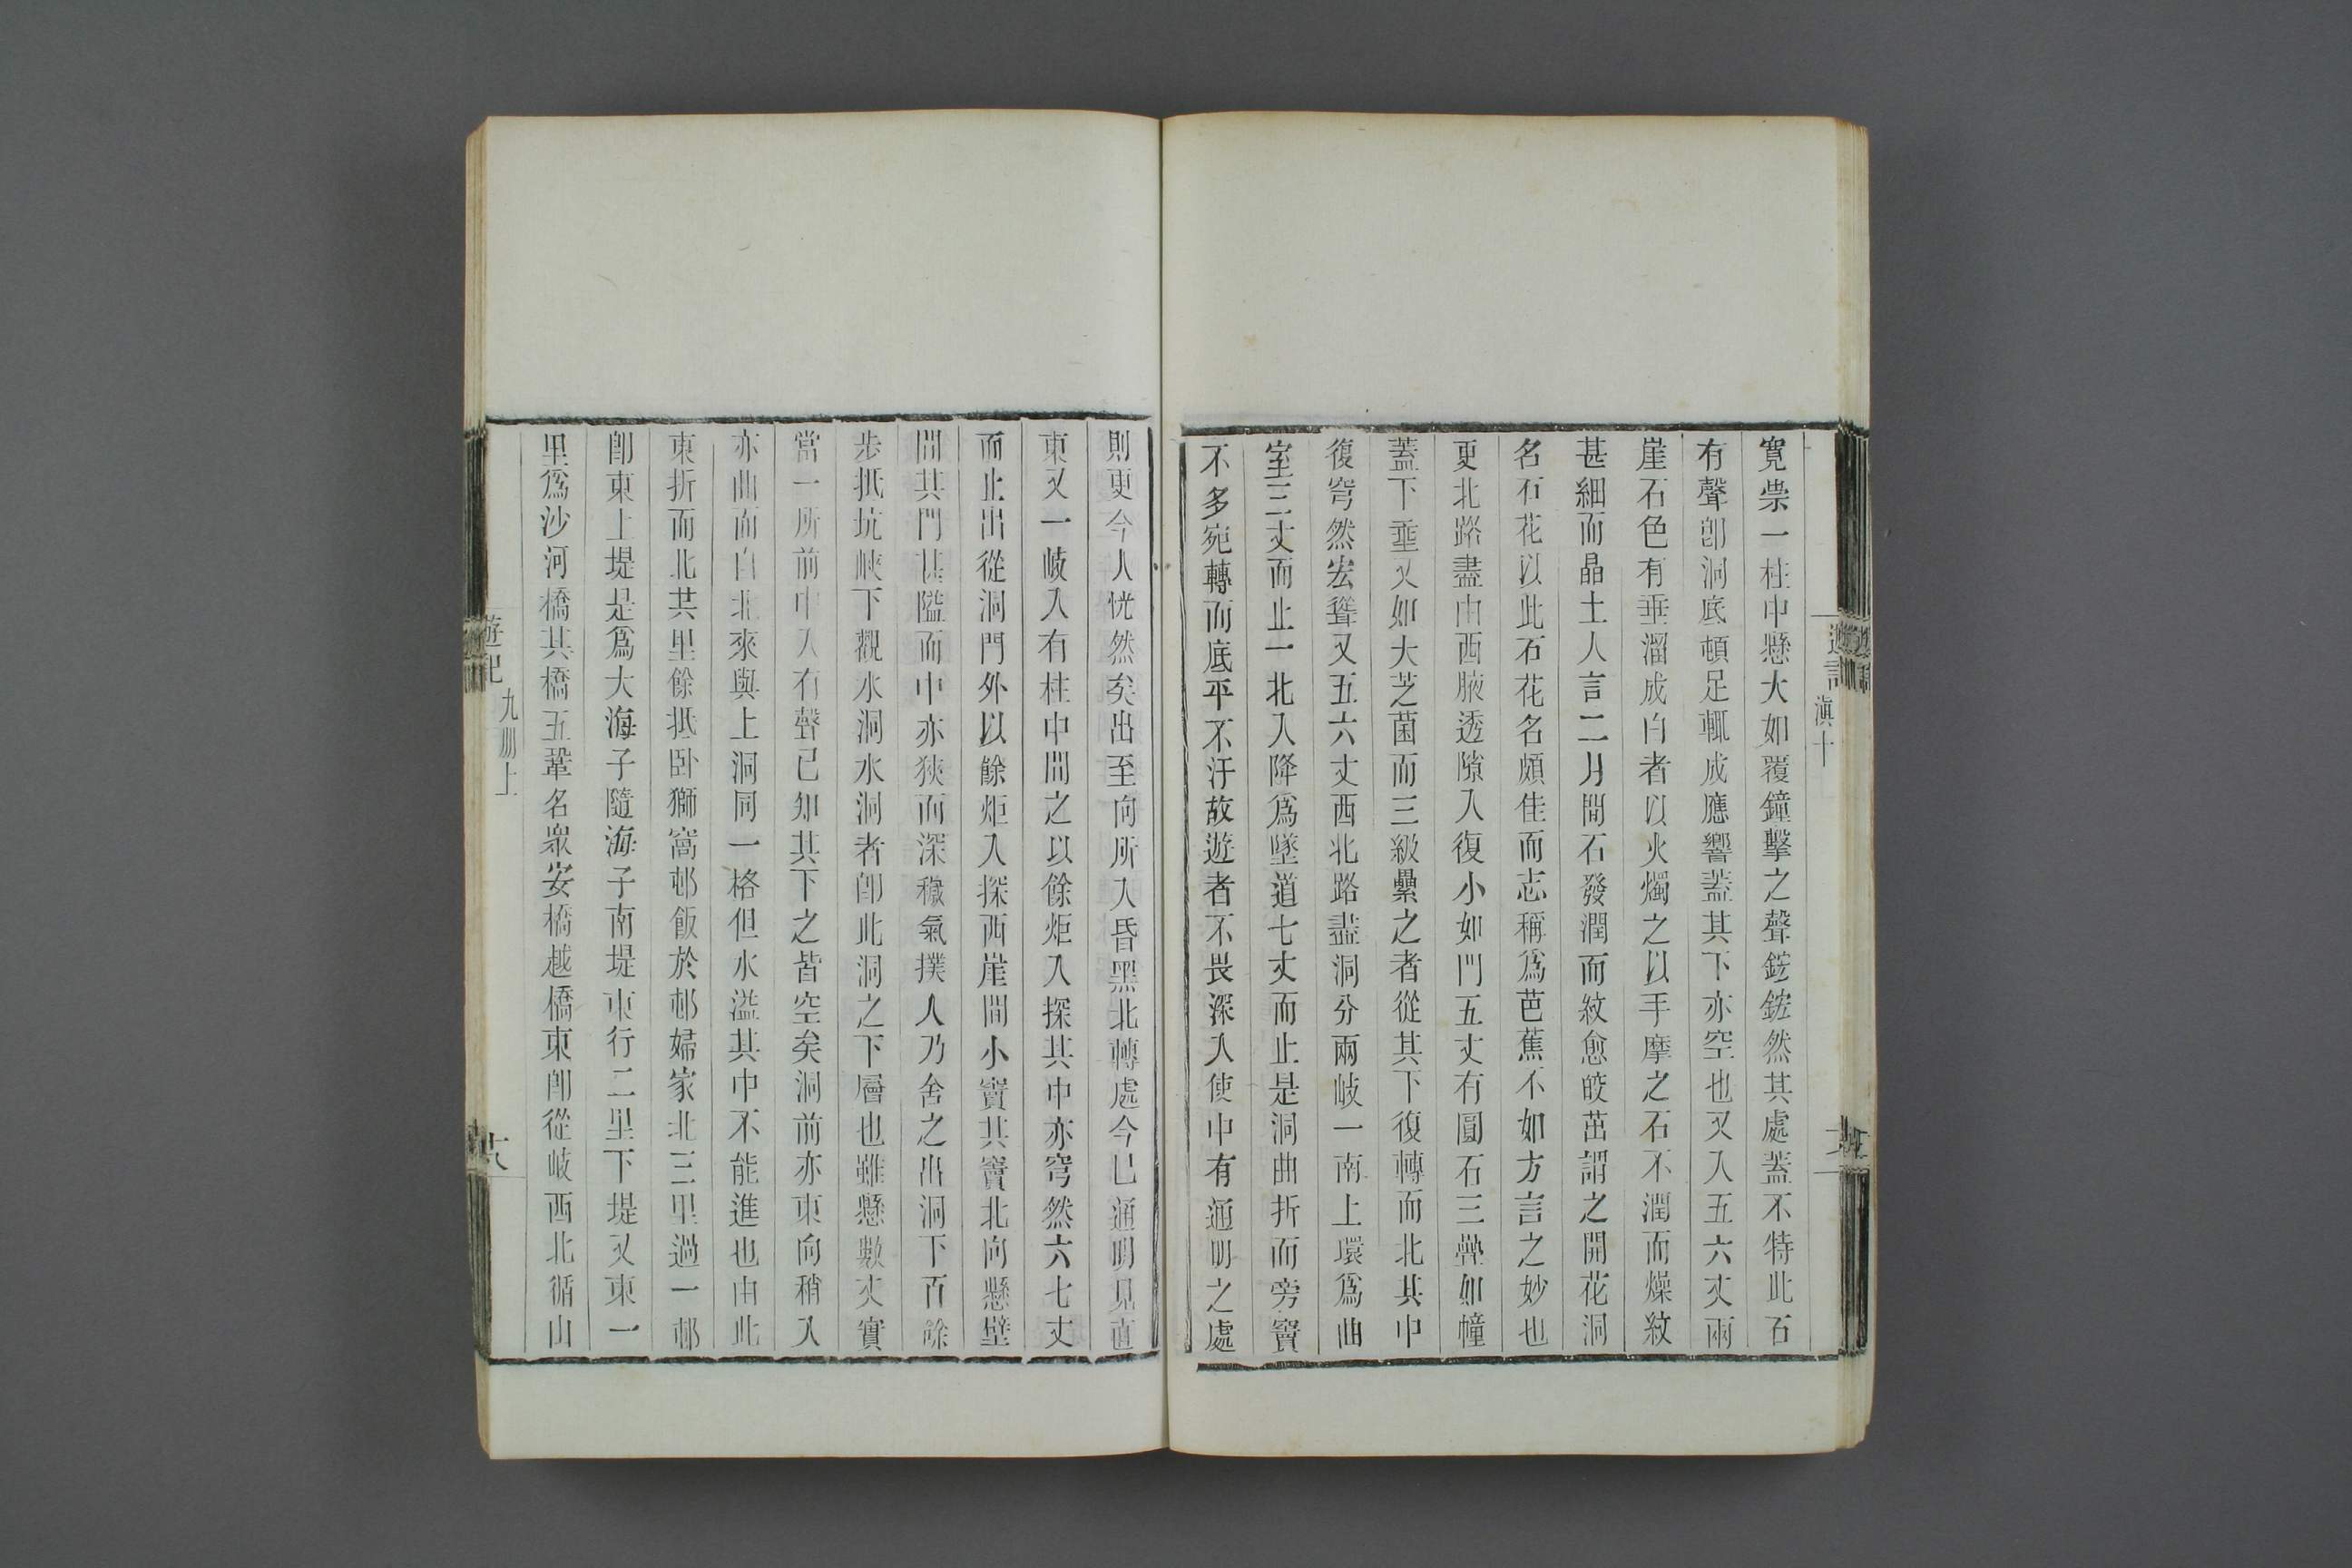 遊記 滇十
寛崇一柱中懸大如覆鐘擊之聲鋐鋐然其處蓋不特此石
有聲卽洞底頓足輒成應響蓋其下亦空也又入五六丈兩
崖石色有垂溜成白者以火燭之以手摩之石不潤而燥紋
甚細而晶土人言二月間石發潤而紋愈皎茁謂之開花洞
名石花以此石花名頗佳而志稱爲芭蕉不如方言之妙也
更北路盡由西腋透隙入復小如門五丈有圓石三疊如幢
蓋下垂又如大芝菌而三級纍之者從其下復轉而北其中
復穹然宏聳又五六丈西北路盡洞分兩岐一南上環爲曲
室三丈而止一北入降爲墜道七丈而止是洞曲折而旁竇
不多宛轉而底平不汙故遊者不畏深入使中有通明之處
則更令人恍然矣出至向所入昏黑北轉處今已通明見直
東又一岐入有柱中間之以餘炬入探其中亦穹然六七丈
而止出從洞門外以餘炬入探西崖間小竇其竇北向懸壁
間其門甚隘而中亦狹而深穢氣撲人乃舍之出洞下百餘
步抵坑峽下觀水洞水洞者卽此洞之下層也雖懸數丈實
當一所前中入有聲已知其下之皆空矣洞前亦東向稍入
亦曲而自北來與上洞同一格但水溢其中不能進也由此
東折而北共里餘抵卧獅窩邨飯於邨婦家北三里過一邨
卽東上堤是爲大海子隨海子南堤東行二里下堤又東一
里爲沙河橋其橋五鞏名衆安橋越橋東卽從岐西北循山
遊記 九册上 十六